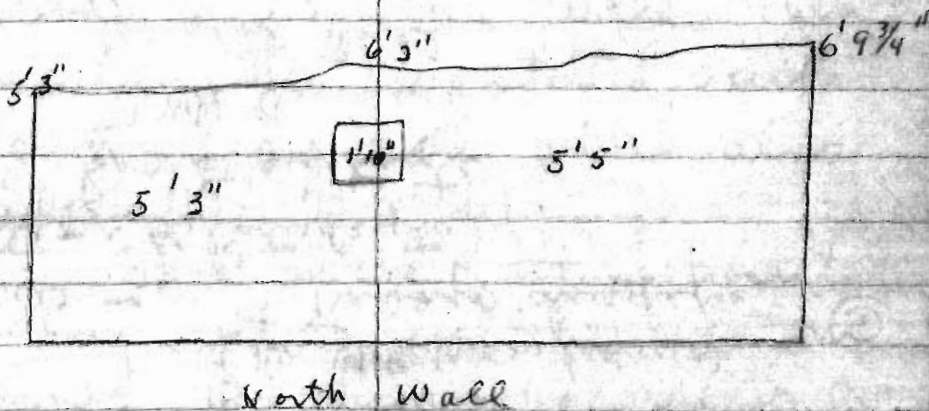 6' 3"
6' 9 3/4"
5' 3"
1' 10"
5' 5"
5' 3"
North Wall